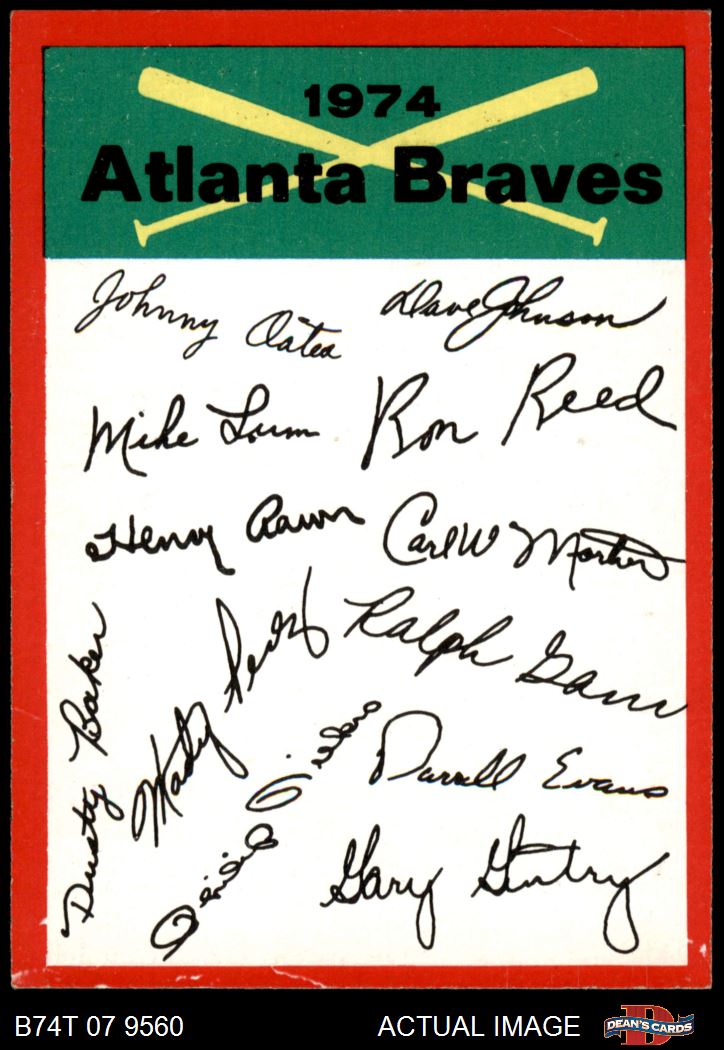 1974
Atlanta Braves
Johnny Oates
Dave Johnson
Mike Lum
Ron Reed
Henry Aaron
Carl W Morton
Dusty Baker
Marty Perez
Ralph Garr
Darrell Evans
Gary Gentry
B74T 07 9560
ACTUAL IMAGE
D
DEAN'S CARDS